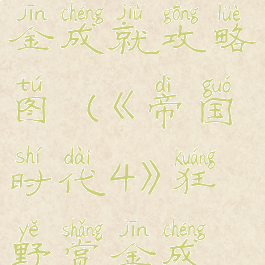 jīn chéng jiù gōng lüè
金成就攻略
tú dì guó
图（《帝国
shí dài kuáng
时代4》狂
yě shǎng jīn chéng
野赏金成